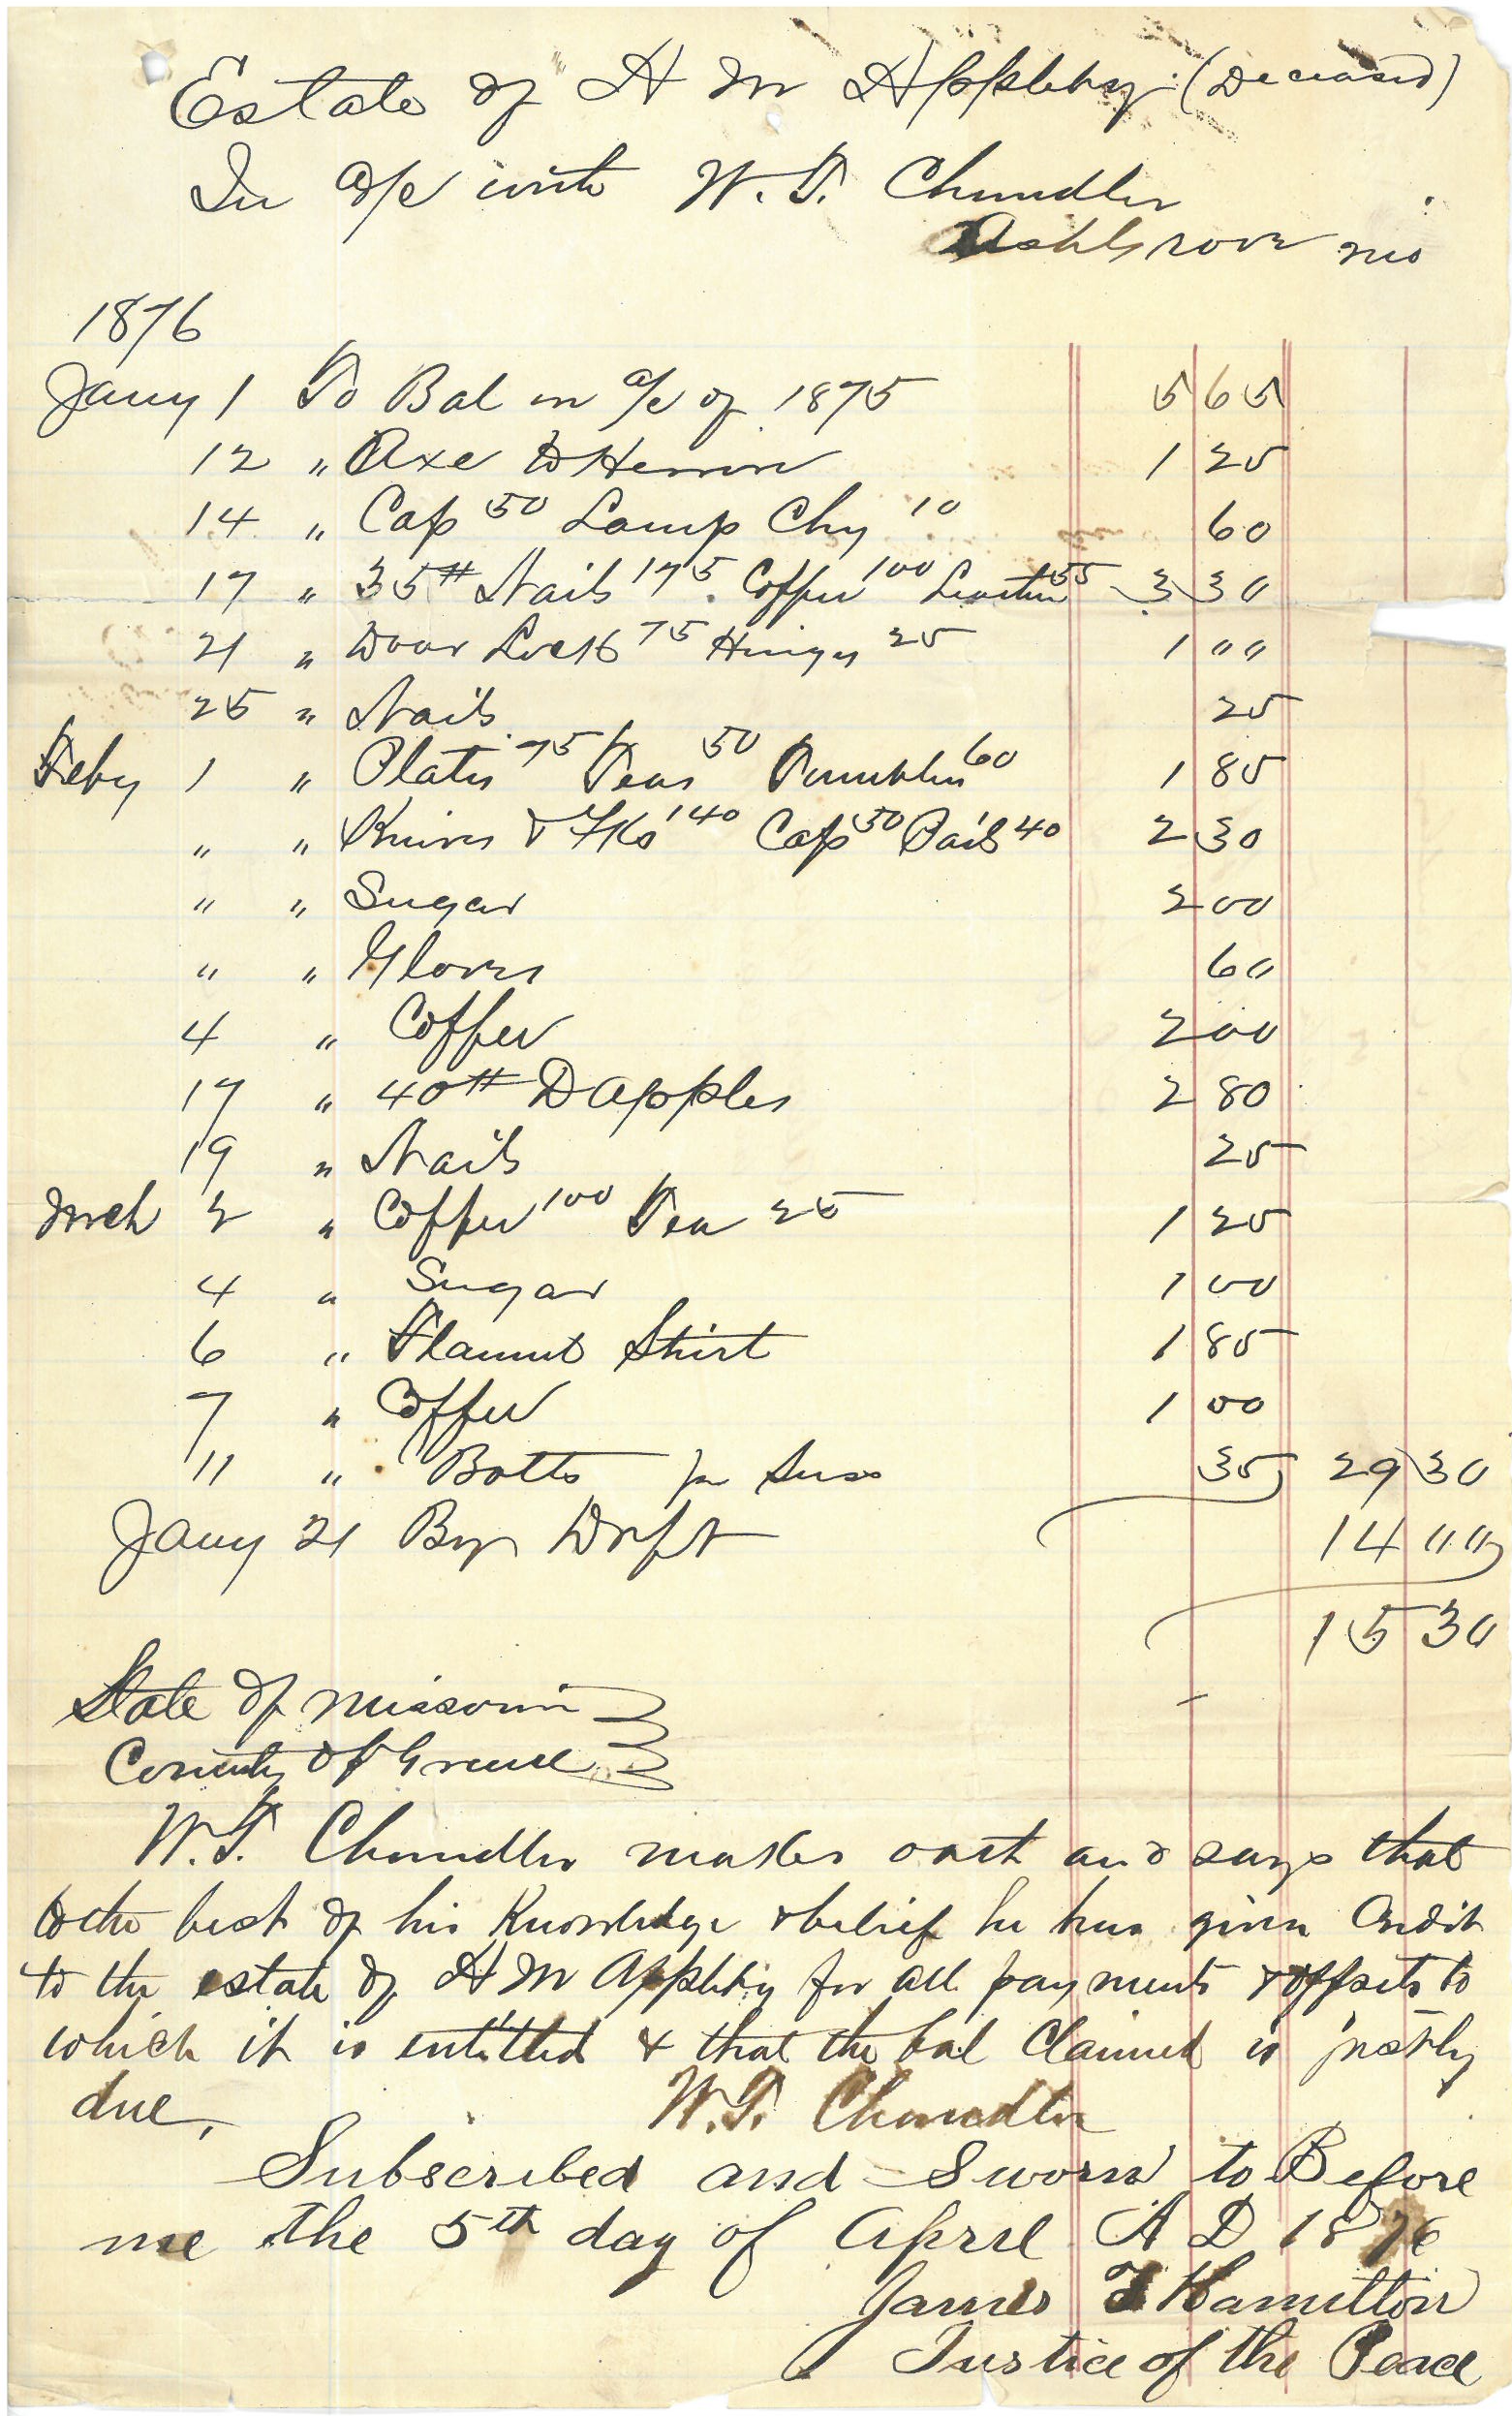 Estate of H M Appleby (Deceased)
In a/c with W. T. Chandler
AshGrove Mo
1876
Jany 1 To Bal on a/c of 1875 5 65
12 " Axe to Herron 1 25
14 " Cap 50 Lamp Chy 10 60
17 " 35# Nails 175 Coffee 100 Leather 55 3 30
21 " Door Lock 75 Hinges 25 1 " "
25 " Nails 25
Feby 1 " Plates 75 Teas 50 Tumblers 60 1 85
" " Knives & Fks 140 Cap 50 Pails 40 2 30
" " Sugar 2 00
" " Gloves 60
4 " Coffee 2 00
17 " 40# D Apples 2 80
19 " Nails 25
Mrch 2 " Coffee 100 Tea 25 1 25
4 " Sugar 1 00
6 " Flannel Shirt 1 85
7 " Coffee 1 00
11 " Botts 35 29 30
Jany 21 By Drft 14 " "
15 30
State of Missouri
County of Greene
W. T. Chandler makes oath and says that
to the best of his Knowledge & belief he has given Credit
to the estate of H M Appleby for all payments & offsets to
which it is entitled & that the bal Claimed is justly
due,
W. T. Chandler
Subscribed and Sworn to Before
me the 5th day of April A D 1876
James Hamilton
Justice of the Peace